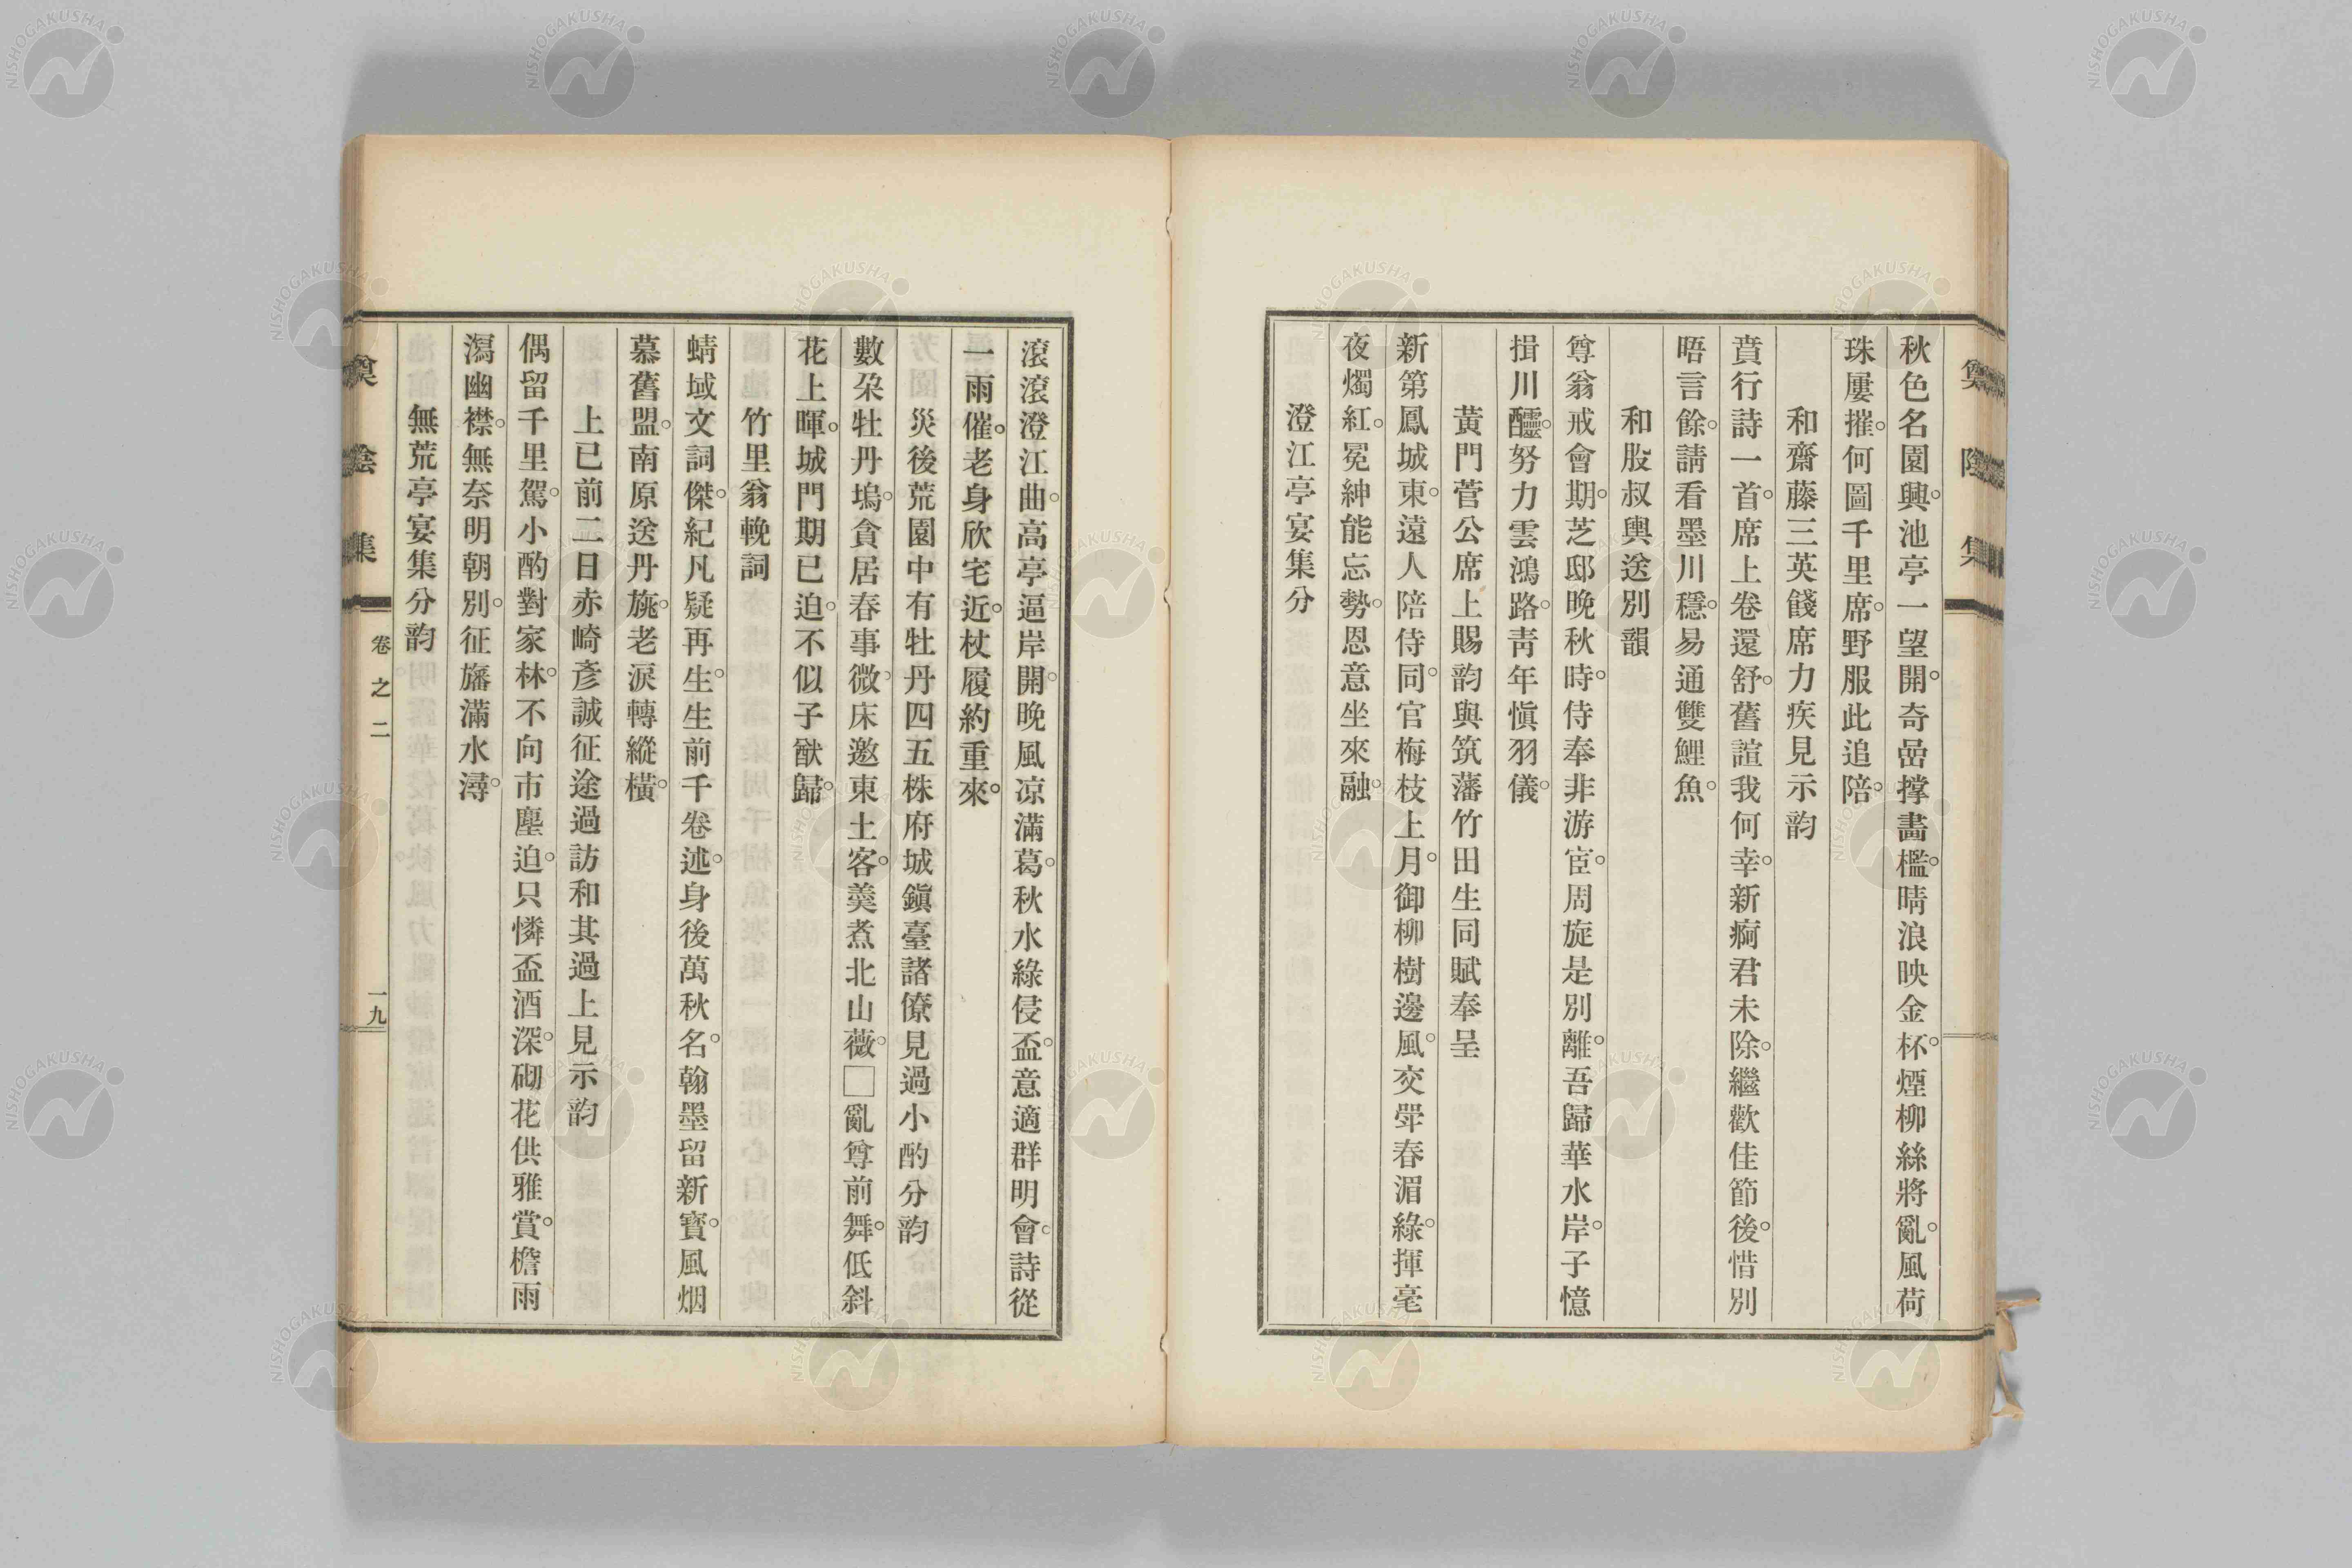 秋色名園興。池亭一望開。奇嵒撑畵檻。晴浪映金杯。煙柳絲將亂。風荷
珠屢摧。何圖千里席。野服此追陪。
和齋藤三英餞席力疾見示韵
賁行詩一首。席上卷還舒。舊誼我何幸。新痾君未除。繼歡佳節後。惜別
晤言餘。請看墨川穩。易通雙鯉魚。
和股叔輿送別韻
尊翁戒會期。芝邸晩秋時。侍奉非游宦。周旋是別離。吾歸華水岸。子憶
揖川醽。努力雲鴻路。靑年愼羽儀。
黄門菅公席上賜韵與筑藩竹田生同賦奉呈
新第鳳城東。遠人陪侍同。官梅枝上月。御柳樹邊風。交斝春湄綠。揮毫
夜燭紅。冕紳能忘勢。恩意坐來融。
澄江亭宴集分
滾滾澄江曲。高亭逼岸開。晚風凉滿葛。秋水綠侵盃。意適群明會。詩從
一雨催。老身欣宅近。杖履約重來。
災後荒園中有牡丹四五株府城鎭臺諸僚見過小酌分韵
數朶牡丹塢。貪居春事微。床邀東土客。羹煮北山薇。□亂尊前舞。低斜
花上暉。城門期已迫。不似子猷歸。
竹里翁輓詞
蜻域文詞傑。紀凡疑再生。生前千卷述。身後萬秋名。翰墨留新寳。風烟
慕舊盟。南原送丹旐。老淚轉縱橫。
上已前二日赤崎彥誠征途過訪和其過上見示韵
偶留千里駕。小酌對家林。不向市塵迫。只憐盃酒深。砌花供雅賞。檐雨
瀉幽襟。無奈明朝別。征旛滿水潯。
無荒亭宴集分韵
集
卷之二
一九